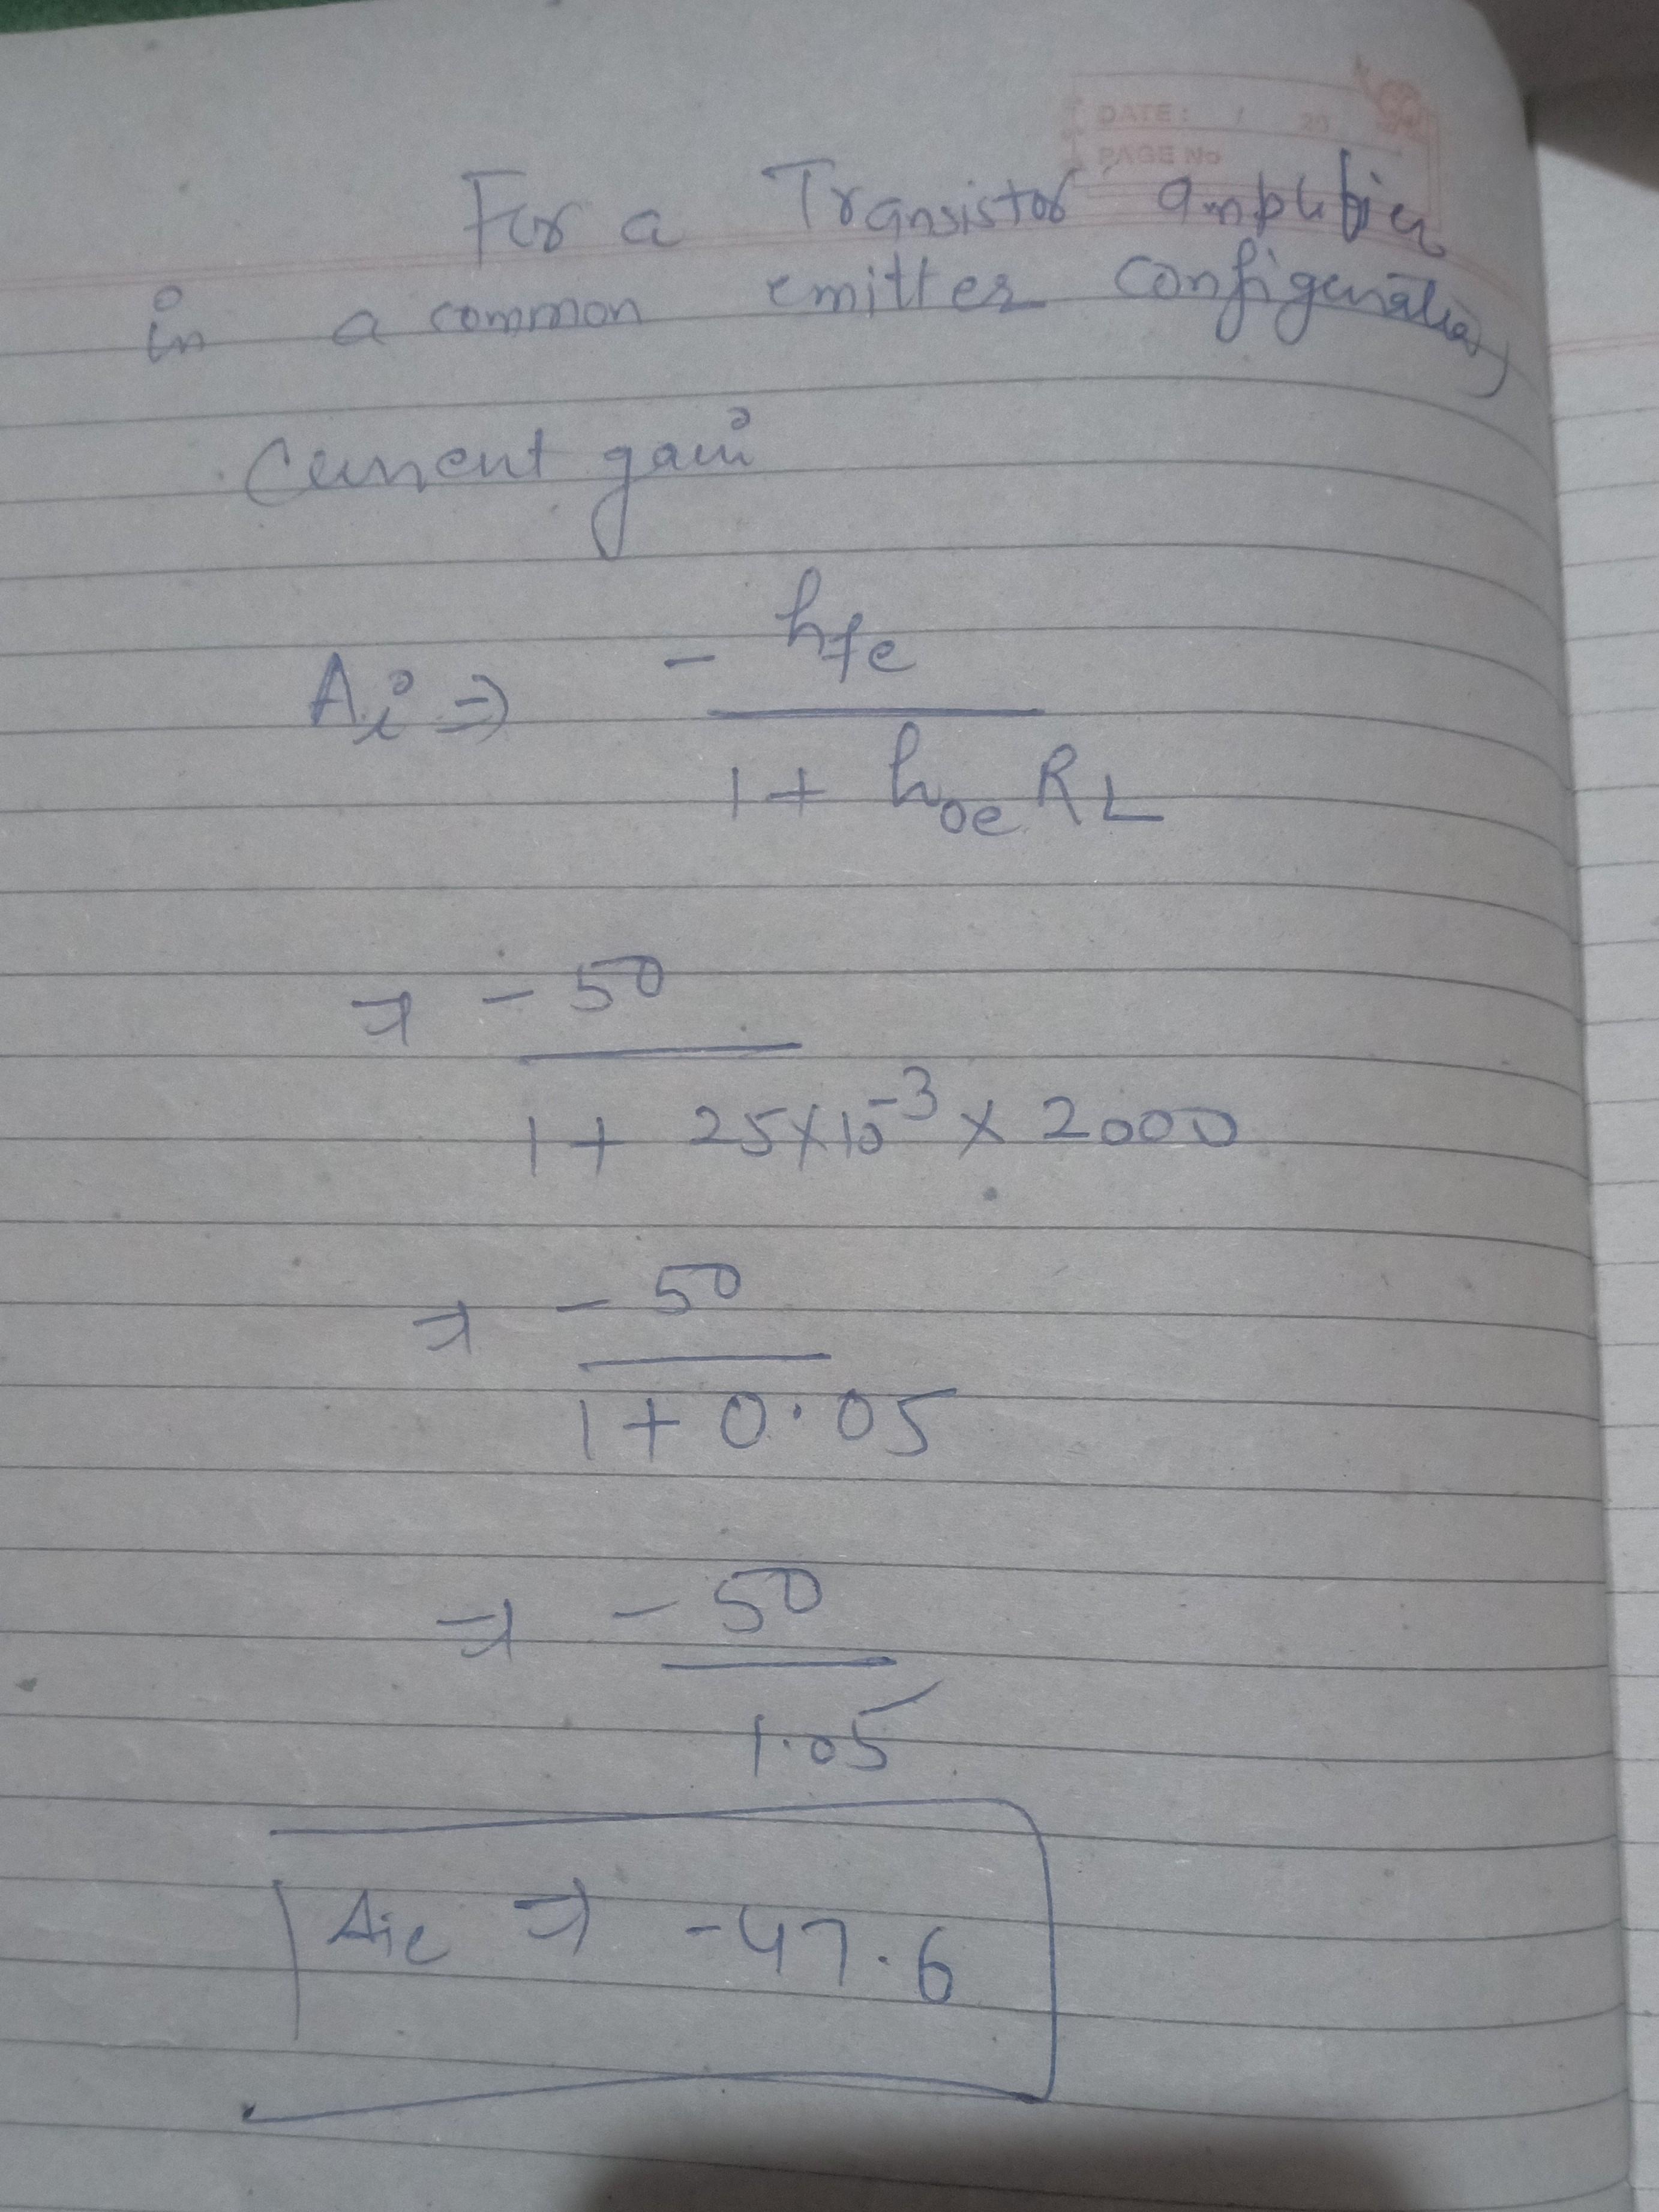 DATE: / 20
PAGE No
For a Transistor amplifier
in a common emitter configuration,
Current gain
Ai ⇒ - hfe
1 + hoe RL
⇒ - 50
1 + 25×10^-3 × 2000
⇒ - 50
1 + 0.05
⇒ - 50
1.05
Aie ⇒ -47.6